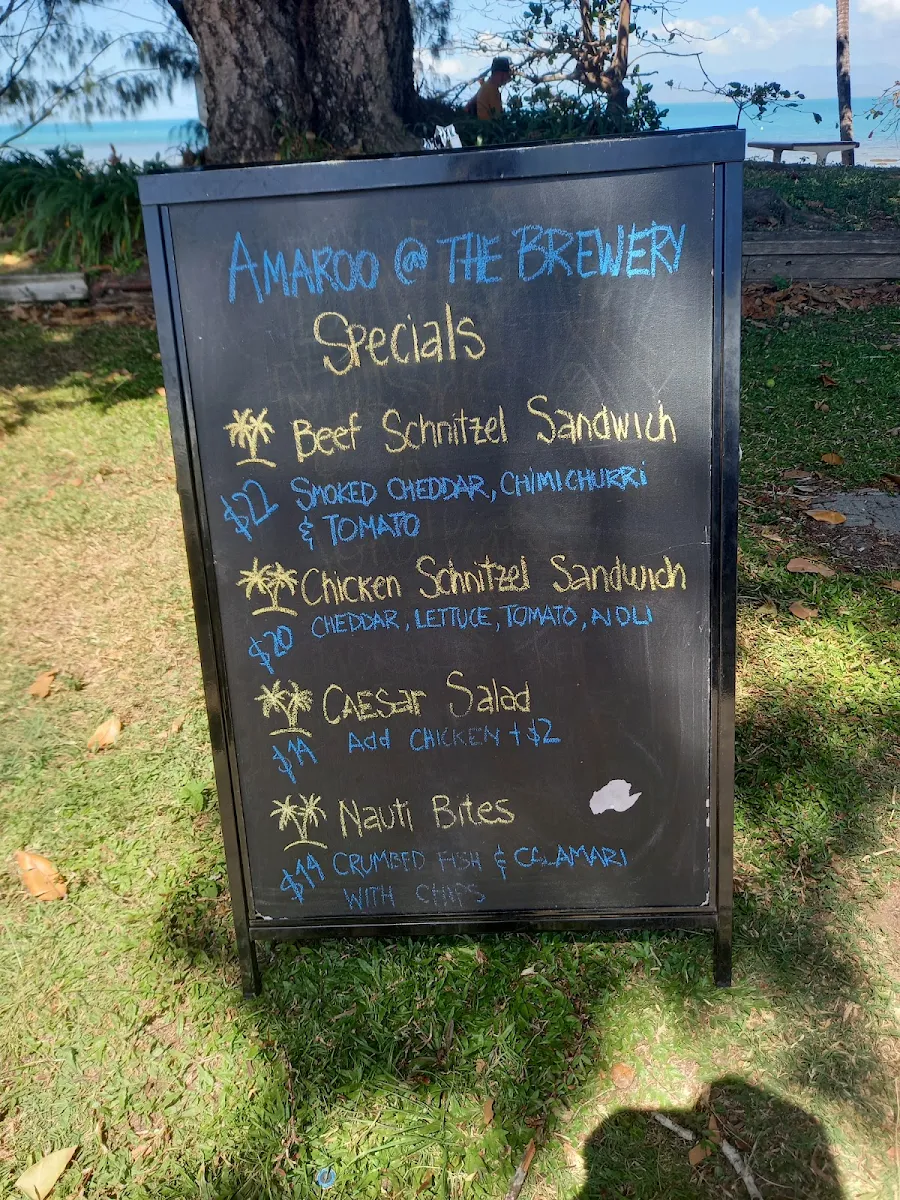 AMAROO @ THE BREWERY
Specials
Beef Schnitzel Sandwich
$22 SMOKED CHEDDAR, CHIMICHURRI
& TOMATO
Chicken Schnitzel Sandwich
$20 CHEDDAR, LETTUCE, TOMATO, AIOLI
CAESar Salad
$14 Add CHICKEN + $2
Nauti Bites
$14 CRUMBED FISH & CALAMARI
WITH CHIPS